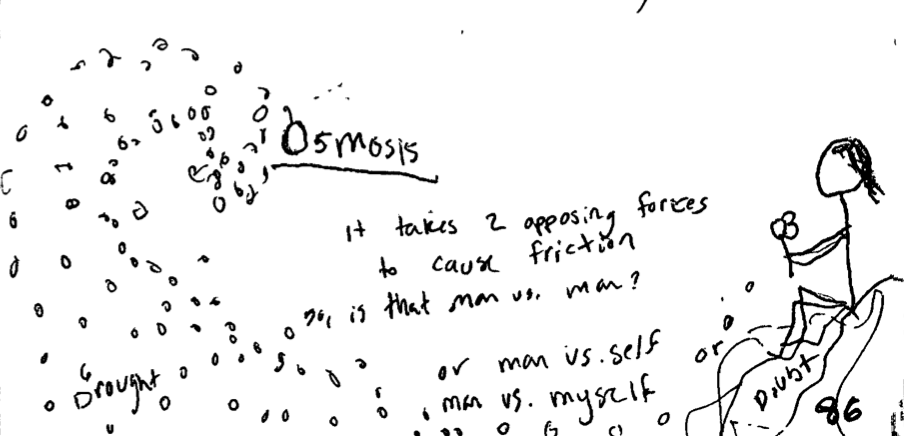 Osmosis
it takes 2 opposing forces
to cause friction
is that man vs. man?
or man vs. self
or
man vs. myself
Drought
Doubt
86